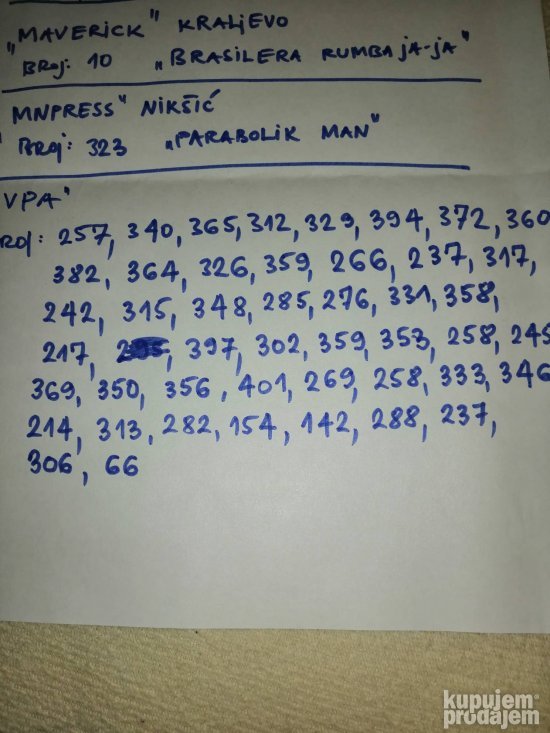 „MAVERICK" KRALjEVO
BROj: 10 „BRASILERA RUMBA jA-jA"
MNPRESS" NIKŠIĆ
BROj: 323 „PARABOLIK MAN"
VPA"
ROj: 257, 340, 365, 312, 329, 394, 372, 360
382, 364, 326, 359, 266, 237, 317,
242, 315, 348, 285, 276, 331, 358,
217, 397, 302, 359, 353, 258, 245
369, 350, 356, 401, 269, 258, 333, 346
214, 313, 282, 154, 142, 288, 237,
306, 66
kupujem
prodajem